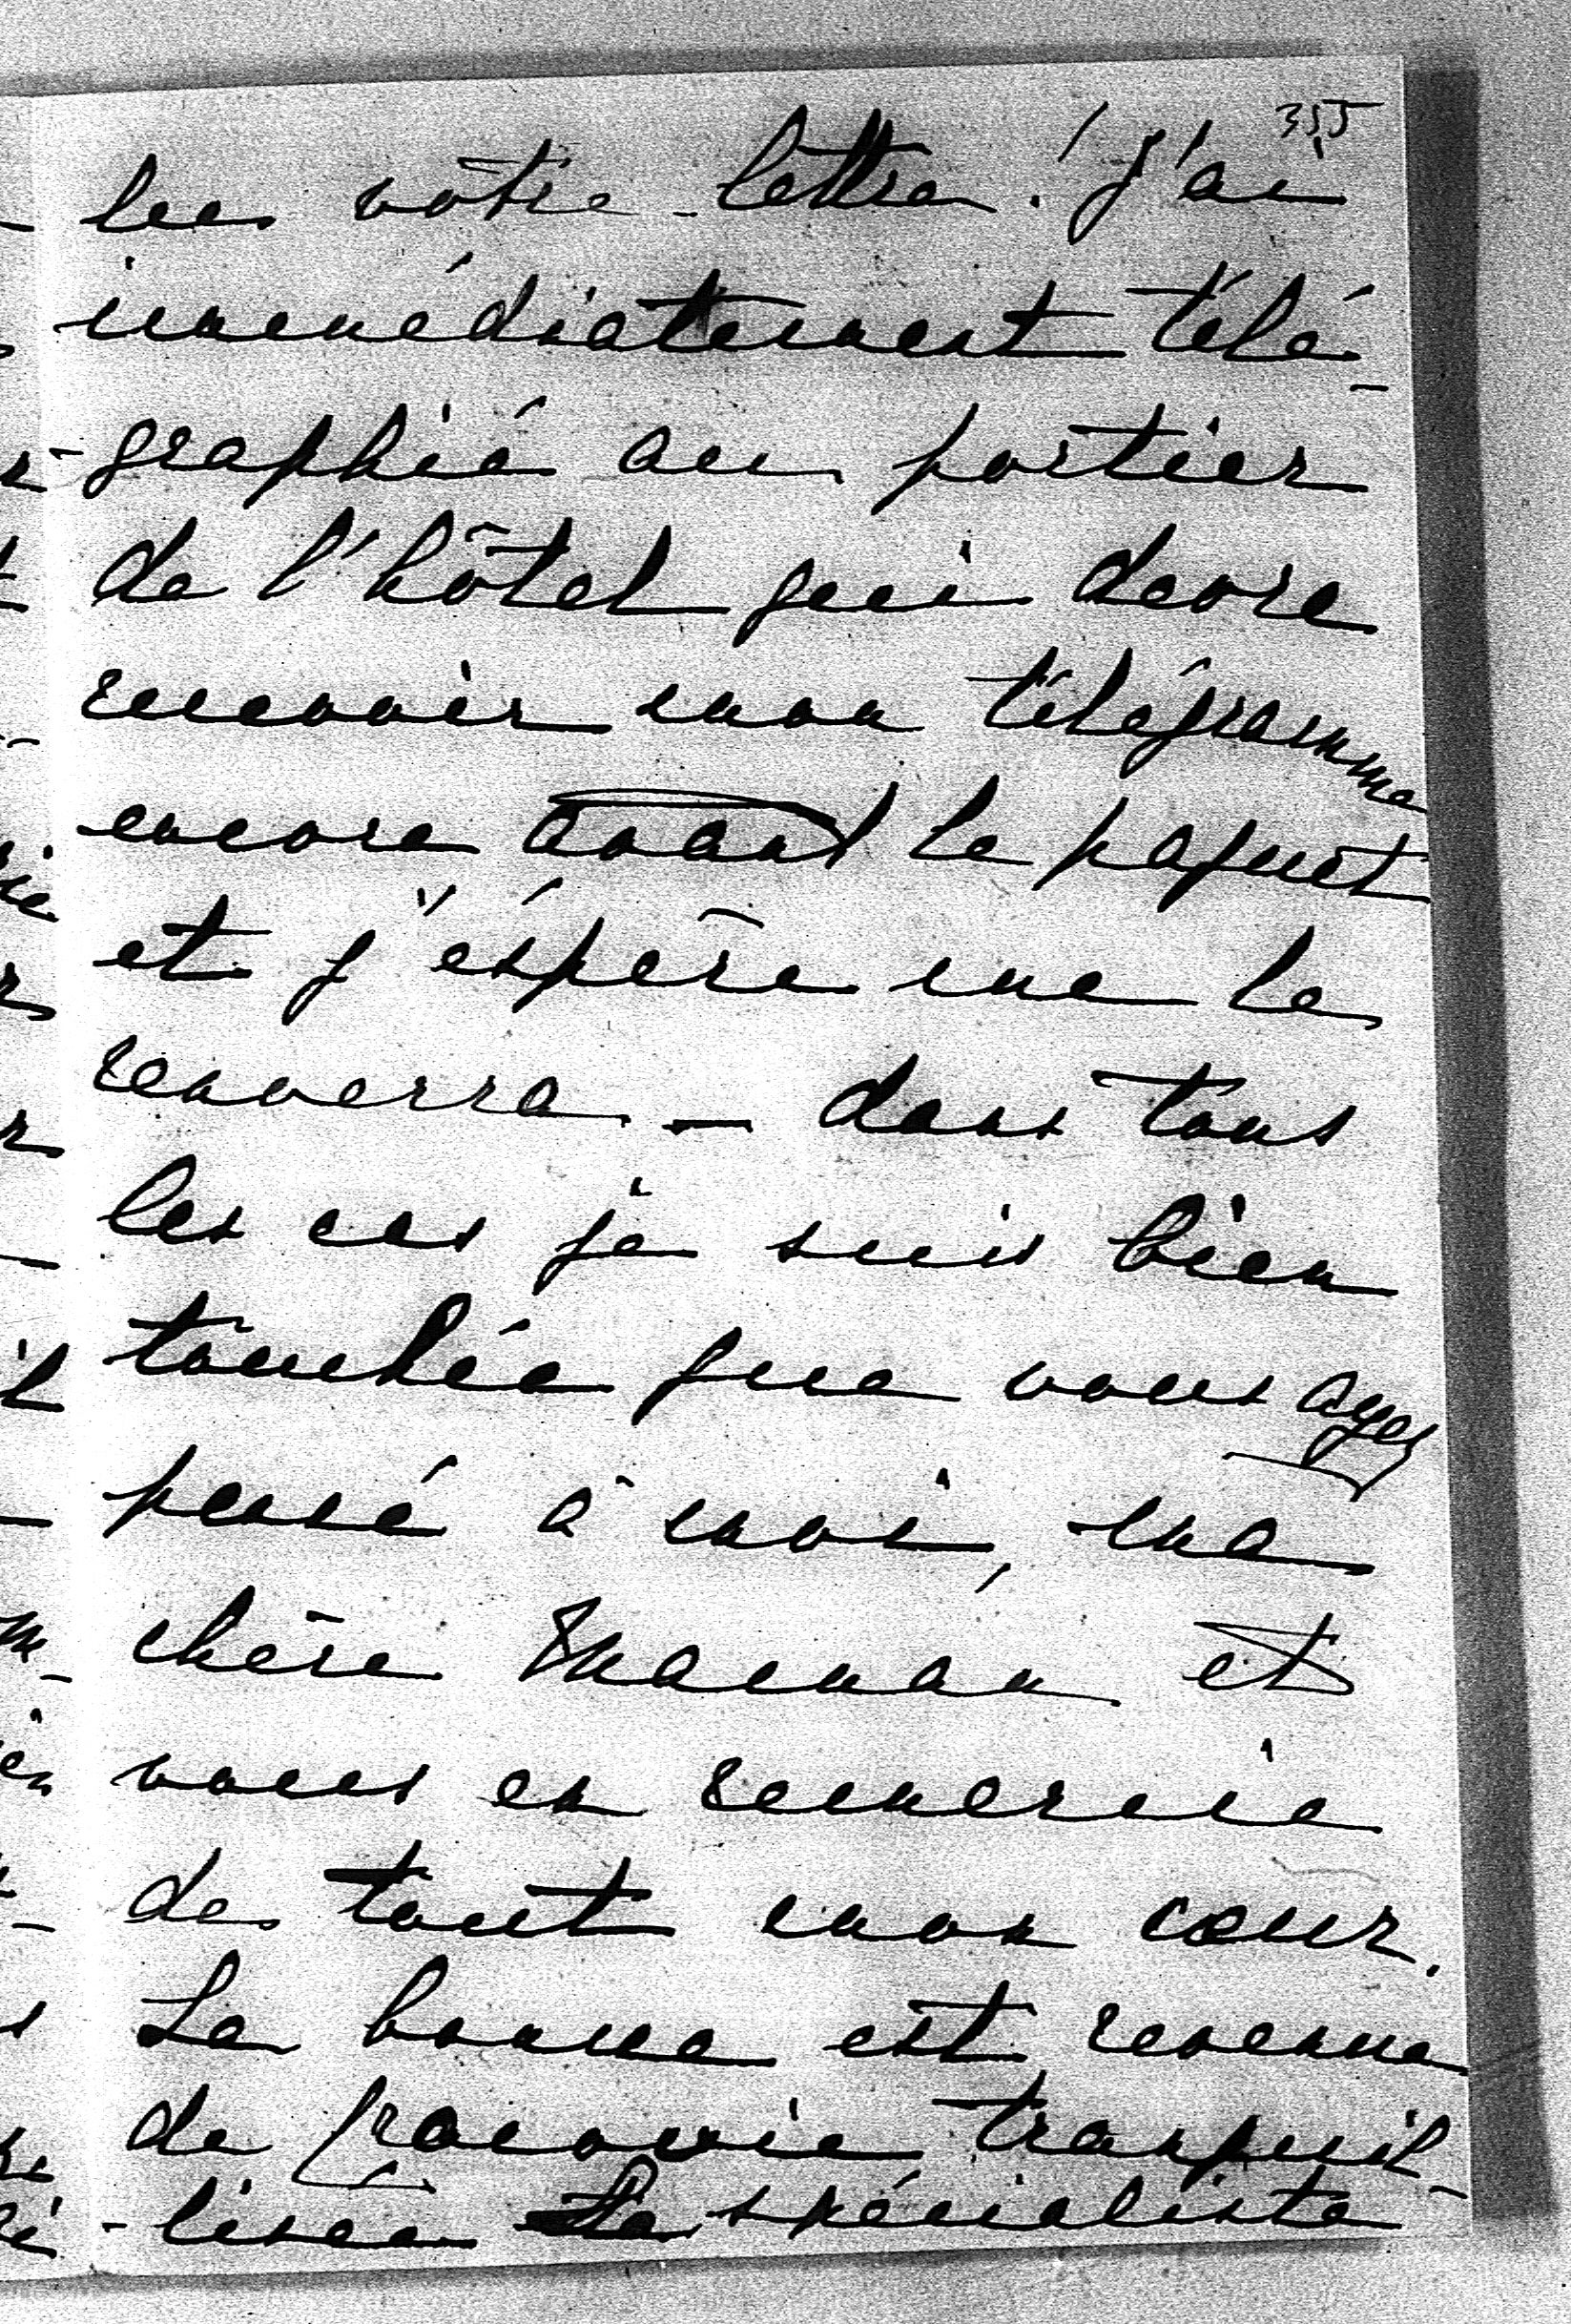 355
lu votre lettre! J'ai
immédiatement télé-
-graphié au portier
de l'hôtel qui devra
recevoir mon télégramme
encore avant le paquet
et j'éspère me le
renverra – dans tous
les cas je suis bien
touchée que vous ayez
pensé à moi, ma
chère Maman et
vous en remercie
de tout mon cœur.
La bonne est revenue
de Cracovie tranquil-
-lisée Le spécialiste